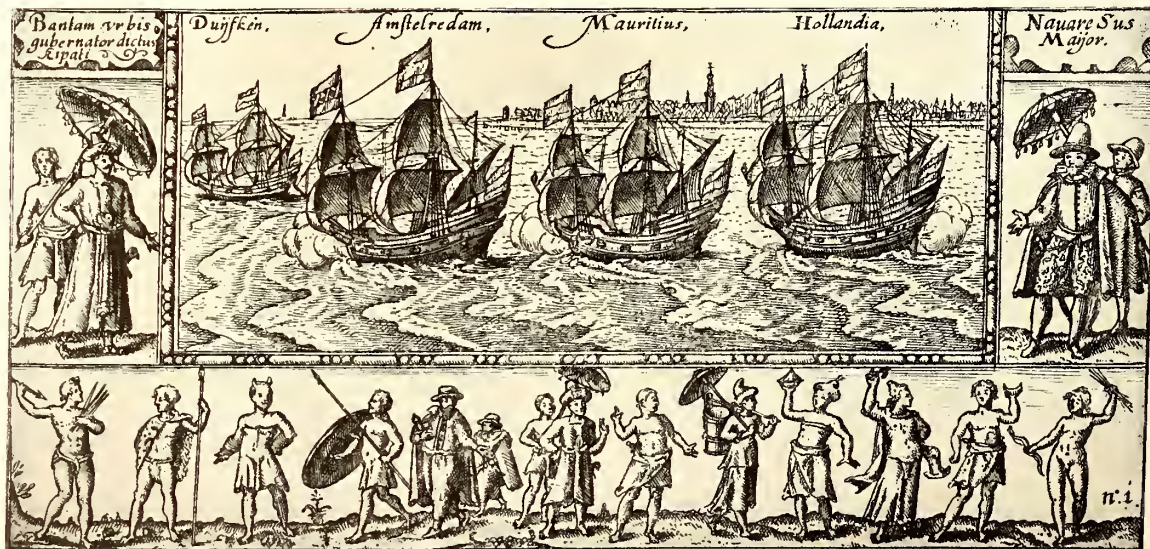 Bantam vrbis
gubernator dictus
Kipati
Duijfken,
Amstelredam,
Mauritius,
Hollandia,
Navare Sus
Maijor.
n.i.